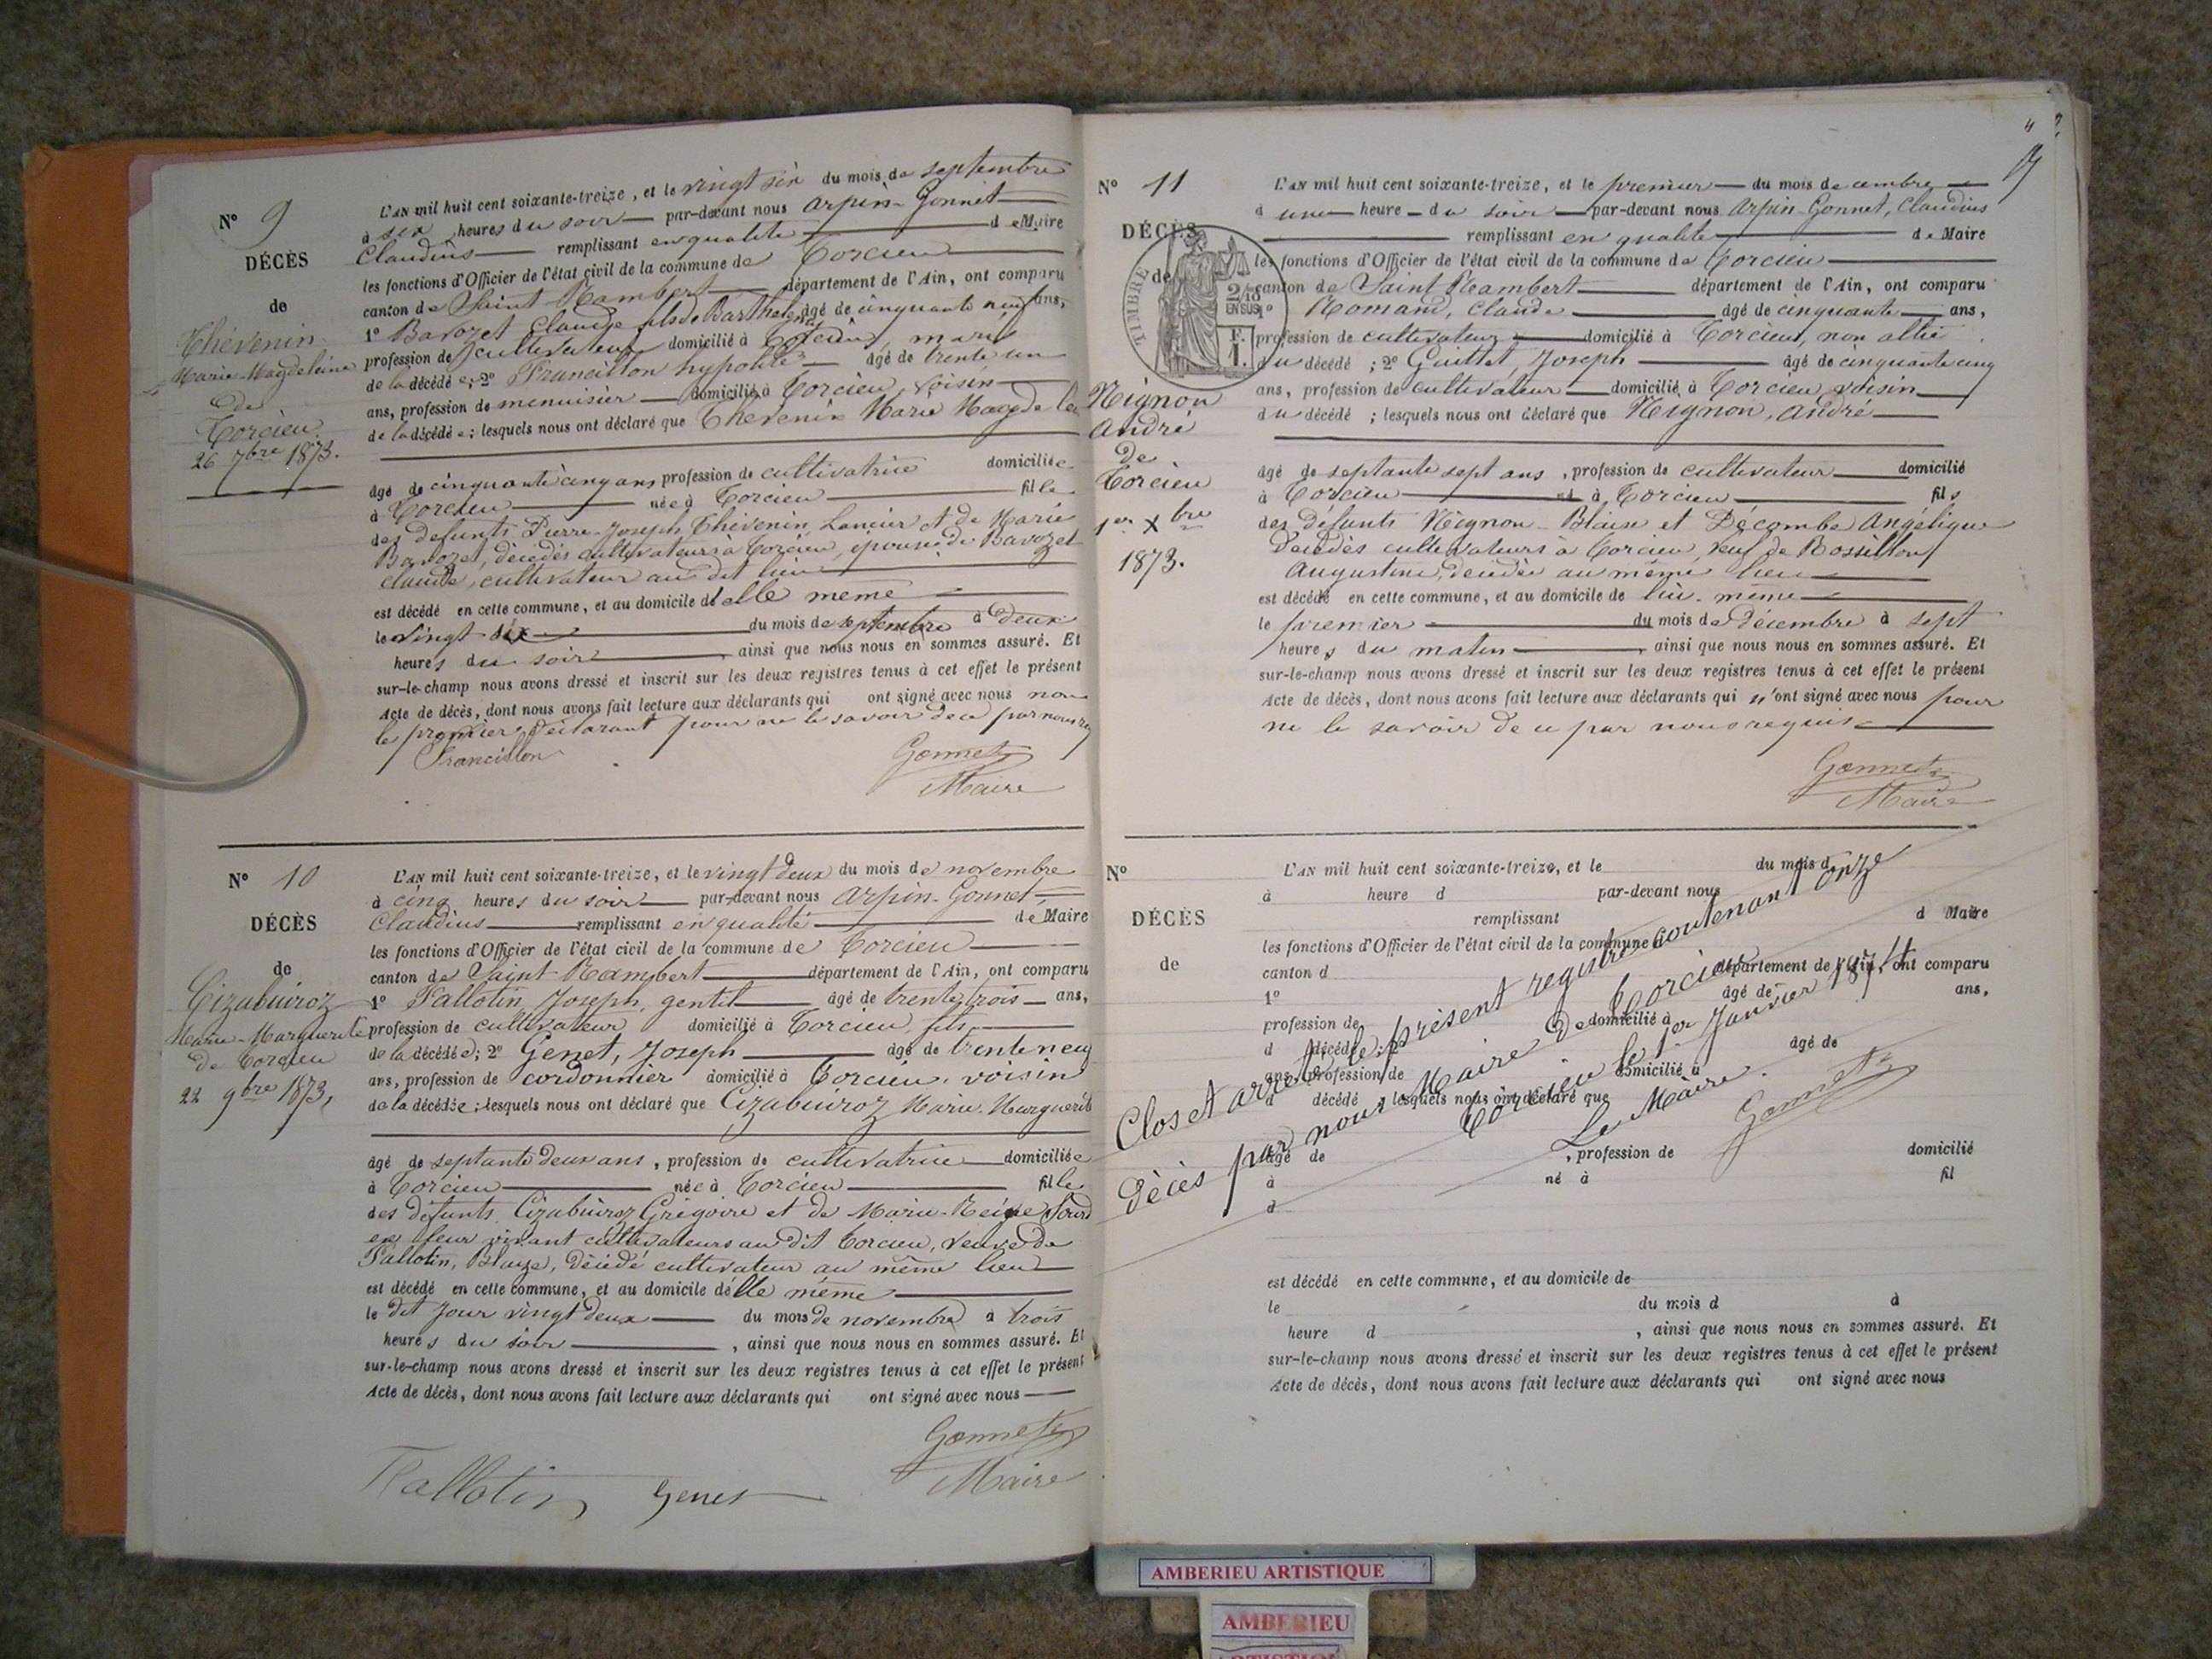 N° 9
DÉCÈS
de
Thévenin
Marie-Magdeleine
de
Torcieu
26 7bre 1873.
L'AN mil huit cent soixante-treize, et le vingt six du mois de septembre
à six heures du soir par-devant nous Arpin-Gonnet
Claudius remplissant en qualité de Maire
les fonctions d'Officier de l'état civil de la commune de Torcieu
canton de Saint Rambert département de l'Ain, ont comparu
1° Bavozet Claude fils de Barthélemy âgé de cinquante neuf ans,
profession de cultivateur domicilié à Torcieu, mari
de la décédée; 2° Francillon hypolite âgé de trente un
ans, profession de menuisier domicilié à Torcieu, voisin
de la décédée; lesquels nous ont déclaré que Thévenin Marie Magdelei
âgé de cinquante cinq ans profession de cultivatrice domiciliée
à Torcieu née à Torcieu fille
des défunts Pierre-Joseph Thévenin Lancier et de Marie
Bavozet, décédés cultivateurs à Torcieu, épouse de Bavozet
claude, cultivateur au dit lieu
est décédé en cette commune, et au domicile d'elle même
le vingt six du mois de septembre à deux
heures du soir, ainsi que nous nous en sommes assuré. Et
sur-le-champ nous avons dressé et inscrit sur les deux registres tenus à cet effet le présent
Acte de décès, dont nous avons fait lecture aux déclarants qui ont signé avec nous non
le premier déclarant pour ne le savoir de ce par nous req
Francillon Gonnet
Maire
N° 10
DÉCÈS
de
Cizabuiroz
Marie-Marguerite
de Torcieu
22 9bre 1873,
L'AN mil huit cent soixante-treize, et le vingt deux du mois de novembre
à cinq heures du soir par-devant nous Arpin-Gonnet,
Claudius remplissant en qualité de Maire
les fonctions d'Officier de l'état civil de la commune de Torcieu
canton de Saint-Rambert département de l'Ain, ont comparu
1° Tallotin, Joseph, gentil âgé de trente trois ans,
profession de cultivateur domicilié à Torcieu, fils
de la décédée; 2° Genet, Joseph âgé de trente neuf
ans, profession de cordonnier domicilié à Torcieu, voisin
de la décédée; lesquels nous ont déclaré que Cizabuiroz Marie-Marguerite
âgé de septante deux ans, profession de cultivatrice domiciliée
à Torcieu née à Torcieu fille
des défunts Cizabuiroz Grégoire et de Marie-Reine
en leur vivant cultivateurs au dit Torcieu, veuve de
Tallotin, Blaize, décédé cultivateur au même lieu
est décédé en cette commune, et au domicile d'elle même
le dit jour vingt deux du mois de novembre à trois
heures du soir, ainsi que nous nous en sommes assuré. Et
sur-le-champ nous avons dressé et inscrit sur les deux registres tenus à cet effet le présent
Acte de décès, dont nous avons fait lecture aux déclarants qui ont signé avec nous
Gonnet
Tallotin Genet Maire
N° 11
DÉCÈS
de
Mignon
André
de
Torcieu
1er Xbre
1873.
TIMBRE
2/10
EN SUS
F.
1.
L'AN mil huit cent soixante-treize, et le premier du mois decembre
à une heure du soir par-devant nous Arpin-Gonnet, Claudius
remplissant en qualité de Maire
les fonctions d'Officier de l'état civil de la commune de Torcieu
canton de Saint Rambert département de l'Ain, ont comparu
1° Romand, Claude âgé de cinquante ans,
profession de cultivateur domicilié à Torcieu, non allié
du décédé; 2° Guittet, Joseph âgé de cinquante cinq
ans, profession de cultivateur domicilié à Torcieu voisin
du décédé; lesquels nous ont déclaré que Mignon, André
âgé de septante sept ans, profession de cultivateur domicilié
à Torcieu né à Torcieu fils
des défunts Mignon-Blaise et Décombe Angélique
décédés cultivateurs à Torcieu, veuf de Bossillon
Augustine, décédée au même lieu
est décédé en cette commune, et au domicile de lui-même
le premier du mois de décembre à sept
heures du matin, ainsi que nous nous en sommes assuré. Et
sur-le-champ nous avons dressé et inscrit sur les deux registres tenus à cet effet le présent
Acte de décès, dont nous avons fait lecture aux déclarants qui n'ont signé avec nous pour
ne le savoir de ce par nous requis
Gonnet
Maire
N°
DÉCÈS
de
L'AN mil huit cent soixante-treize, et le du mois d
à heure d par-devant nous
remplissant d Maire
les fonctions d'Officier de l'état civil de la commune d
canton d département de l'Ain, ont comparu
1° âgé de ans,
profession de domicilié à
d décédé; 2° âgé de
ans, profession de domicilié à
d décédé; lesquels nous ont déclaré que
âgé de , profession de domicilié
à né à fil
d
est décédé en cette commune, et au domicile de
le du mois d à
heure d , ainsi que nous nous en sommes assuré. Et
sur-le-champ nous avons dressé et inscrit sur les deux registres tenus à cet effet le présent
Acte de décès, dont nous avons fait lecture aux déclarants qui ont signé avec nous
Clos et arrêté le présent registre contenant onze
décès par nous Maire de Torcieu
Torcieu le 1er Janvier 1874
Le Maire.
Gonnet
AMBERIEU ARTISTIQUE
AMBERIEU
ARTISTIQUE